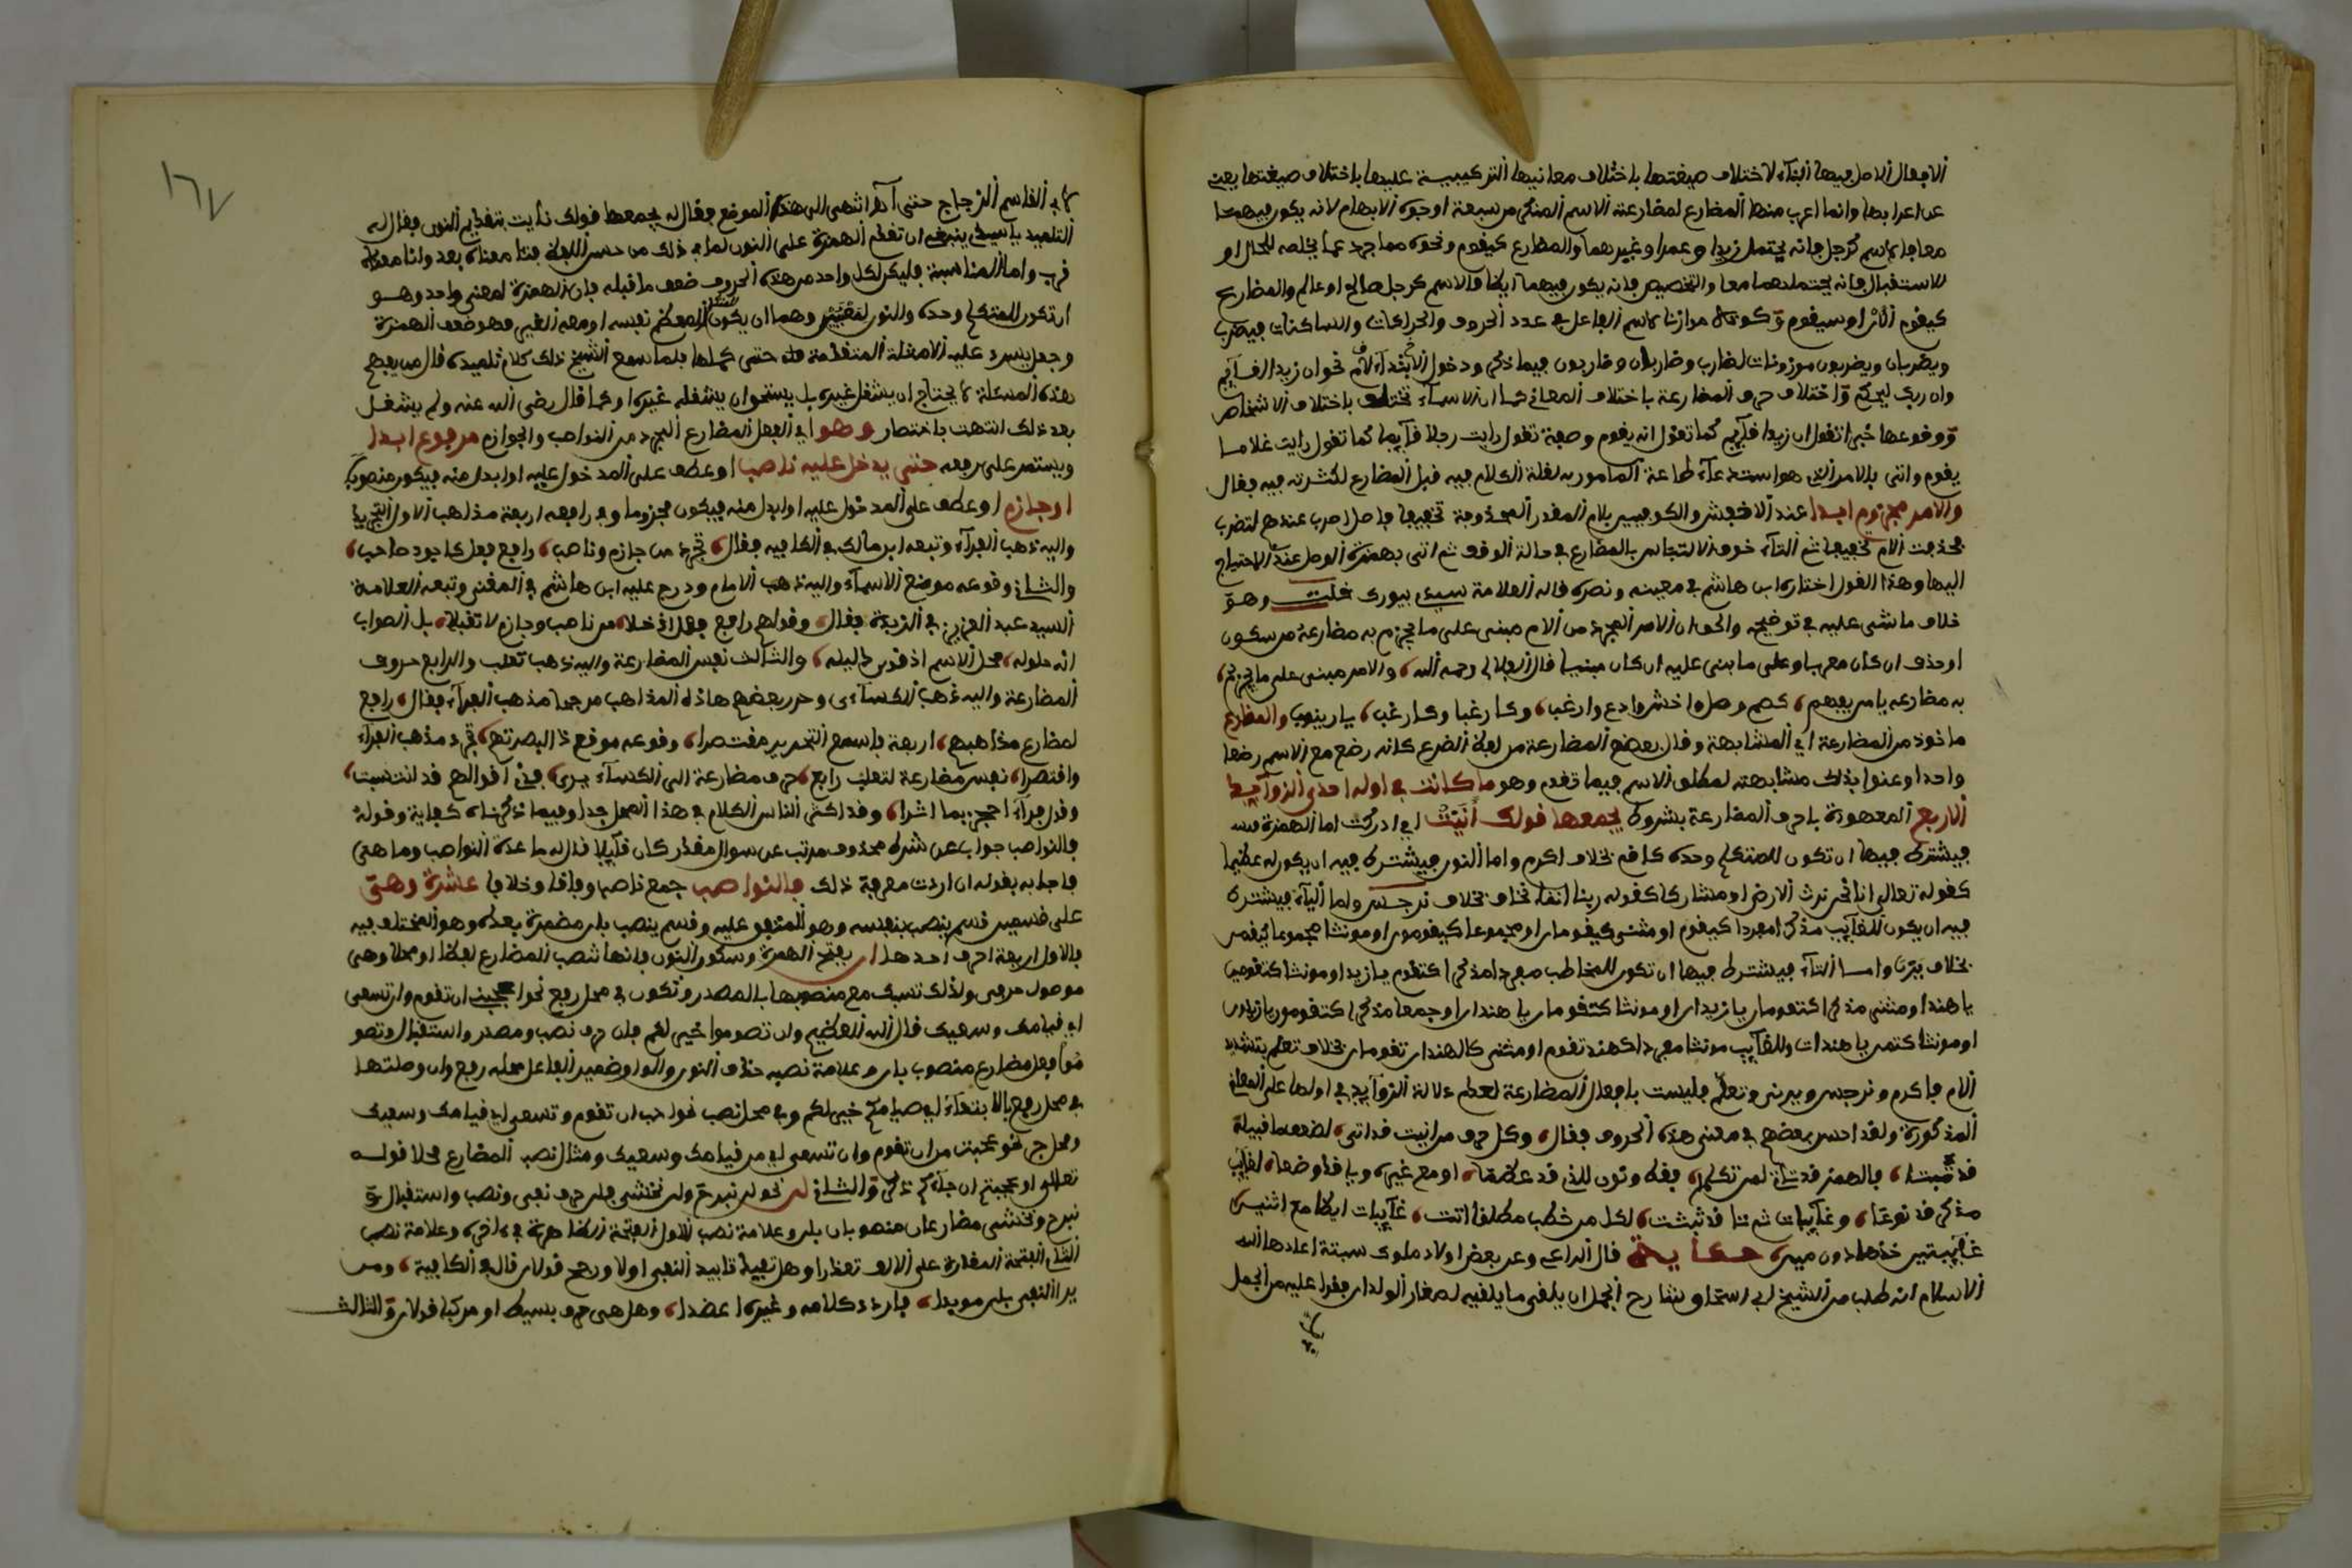 الافعال الاصل فيها البناء لاختلاف صيغتها باختلاف معانيها التركيبية عليها باختلاف صيغتها يعني
عن اعرابها وانما اعرب منها المضارع لمضارعته الاسم المنكر من سبعة اوجه الابهام لانه يكون فيهما
معا فاسم كرجل فانه يحتمل زيدا وعمرا وغيرهما والمضارع كيقوم ونحوه مما جرد عما يخلصه للحال او
للاستقبال فانه يحتملهما معا والتخصيص فانه يكون فيهما ايضا فالاسم كرجل صالح او عالم والمضارع
كيقوم الان او سيقوم وكونه موازنا لاسم الفاعل في عدد الحروف والحركات والساكنات فيضرب
ويضربان ويضربون موزونات لضارب وضاربان وضاربون فيما ذكر ودخول لام الابتداء نحو ان زيدا لقائم
وان ربك ليحكم واختلاف حرف المضارعة باختلاف المعاني كما ان الاسماء تختلف باختلاف الاشخاص
ووقوعها خبرا تقول ان زيدا قائم كما تقول انه يقوم وصفة تقول رايت رجلا قائما كما تقول رايت غلاما
يقوم واتى بالامر الذي هو استدعاء طاعة المامور به لقلة الكلام فيه قبل المضارع لكثرته فيه فقال
والامر مجزوم ابدا عند الاخفش والكوفيين بلام المقدر المحذوفة تخفيفا فاصل اضرب عندهم لتضرب
فحذفت اللام تخفيفا ثم التاء خوف الالتباس بالمضارع في حالة الوقف ثم اتى بهمزة الوصل عند الاحتياج
اليها وهذا القول اختاره ابن هاشم في مغنيه ونصره قاله العلامة سيدي بيورك قلت وهو
خلاف ما مشى عليه في توضيحه والحق ان الامر المجرد من اللام مبني على ما يجزم به مضارعه من سكون
او حذف ان كان معربا وعلى ما بنى عليه ان كان مبنيا قال الهلالي رحمه الله والامر مبني على ما يجزم
به مضارعه يا من يفهم كصم وصل واخش وادع وارغب وكارغبا وكارغب يا زينب والمضارع
ماخوذ من المضارعة اي المشابهة وقال بعضهم المضارعة من لفظ الضرع كانه رضع مع الاسم رضعا
واحدا وعنوا بذلك مشابهته لمطلق الاسم فيما تقدم وهو ما كانت في اوله احدى الزوائد
الاربع المعهودة باحرف المضارعة بشروط يجمعها قولك انيت اي ادركت اما الهمزة منه
فيشترط فيها ان تكون للمتكلم وحده كاقم بخلاف اكرم واما النون فيشترط فيه ان يكون له عظيما
كقوله تعالى انا نحن نرث الارض او مشاركا كقوله ربنا اننا نخاف بخلاف نرجس واما الياء فيشترط
فيه ان يكون للغائب مذكرا مفردا كيقوم او مثنى كيقومان او مجموعا كيقومون او مونثا مجموعا كيقمن
بخلاف يرنا واما التاء فيشترط فيها ان تكون للمخاطب مفردا مذكرا كتقوم يا زيد او مونثا كتقومين
يا هند او مثنى مذكرا كتقومان يا زيدان او مونثا كتقومان يا هندان او جمعا مذكرا كتقومون يا زيدون
او مونثا كتقمن يا هندات وللغائب مونثا مفردا كهند تقوم او مثنى كالهندان تقومان بخلاف تعلم بتشديد
اللام فاكرم ونرجس ويرنى وتعلم فليست بافعال المضارعة لعدم دلالة الزوائد في اولها على المعاني
المذكورة ولقد احسن بعضهم في معنى هذه الحروف فقال وكل حرف من انيت قد اتى لضعف ما قبله
قد ثبتا فالهمز قد اتى لمن تكلما فقط ونون للذي قد عظما او مع غيره ويا قد وضعا لغائب
مذكر قد نوعا وغائبات ثم تا قد ثبتت لكل من خطب مطلقا اتت غائبات ايضا مع اثنين
غائبتين خذها دون مين حكاية قال الراعي وعن بعض اولاد ملوك سبتة اعادها الله
للاسلام انه طلب من الشيخ ابي اسحاق شارح الجمل ان يلقي ما يلقيه لصغار الولدان فقرا عليه من الجمل
لابي القاسم الزجاج حتى اذا انتهى الى هذا الموضع فقال له يجمعها قولك نايت بتقديم النون فقال له
التلميذ يا سيدي ينبغي ان تقدم الهمزة على النون لما في ذلك من حسن اللفظ فنا معناه بعد وانا معناه
قرب واما المناسبة فليكن لكل واحد من هذه الحروف ضعف ما قبله فان الهمزة لمعنى واحد وهو
ان تكون للمتكلم وحده والنون لمعنيين وهما ان يكون للمعظم نفسه او معه الغير فهو ضعف الهمزة
وجعل يسرد عليه الامثلة المتقدمة حتى كملها فلما سمع الشيخ ذلك كلام تلميذه قال من يفهم
هذه المسئلة لا يحتاج ان يشتغل غيره بل يستحق ان يشغله غيره او كما قال رضي الله عنه ولم يشغل
بعد ذلك انتهت باختصار وهو اي الفعل المضارع المجرد من النواصب والجوازم مرفوع ابدا
ويستمر على رفعه حتى يدخل عليه ناصب او عطف على المدخول عليه او ابدل منه فيكون منصوبا
او جازم او عطف على المدخول عليه او ابدل منه فيكون مجزوما وفي رافعه اربعة مذاهب الاول التجريد
واليه ذهب الفراء وتبعه ابن مالك في الكافية فقال تجرد من جازم وناصب رافع فعل كابود صاحب
والثاني وقوعه موضع الاسماء واليه ذهب الامام ودرج عليه ابن هاشم في المغني وتبعه العلامة
السيد عبد العزيز في الزبدة فقال وقولهم رافع فعل اذ خلا من ناصب وجازم لا تقبلا بل الصواب
انه حلوله محل الاسم اذ قوى دليله والثالث نفس المضارعة واليه ذهب ثعلب والرابع حروف
المضارعة واليه ذهب الكسائي وحرر بعضهم هاذه المذاهب مرجحا مذهب الفراء فقال رافع
لمضارع مذاهبهم اربعة فاسمع التحرير مقتصرا وقوعه موقع ذا البصرتهم تجرد مذهب الفراء
واقتصرا نفس مضارعة لثعلب رابع حرف مضارعة الى الكسائي يرى فخذ اقوالهم قد انتسبت
وقول فراء احجج بما اشرا وقد اكثر الناس الكلام في هذا العمل جدا وفيما ذكرناه كفاية وقوله
فالنواصب جواب عن شرط محذوف مرتب عن سوال مقدر كان قائلا قال له ما عدة النواصب وما هي
فاجابه بقوله ان اردت معرفة ذلك فالنواصب جمع ناصب وفاقا وخلافا عشرة وهي
على قسمين قسم ينصب بنفسه وهو المتفق عليه وقسم ينصب بان مضمرة بعده وهو المختلف فيه
فالاول اربعة احرف احدها ان بفتح الهمزة وسكون النون فانها تنصب المضارع لفظا او محلا وهي
موصول حرفي ولذلك تسبك مع منصوبها بالمصدر وتكون في محل رفع نحو اعجبني ان تقوم وان تسعى
اي قيامك وسعيك قال الله العظيم وان تصوموا خير لكم فان حرف نصب ومصدر واستقبال وتصو
موا فعل مضارع منصوب بان وعلامة نصبه حذف النون والواو ضمير الفاعل محله رفع وان وصلتها
في محل رفع بالابتداء اي صيامكم خير لكم وفي محل نصب نحو احب ان تقوم وتسعى اي قيامك وسعيك
ومحل جر نحو عجبت من ان تقوم وان تسعى اي من قيامك وسعيك ومثال نصب المضارع محلا قوله
تعالى او عجبتم ان جاءكم ذكر والثاني لن نحو لن نبرح ولن نخشى فلن حرف نفي ونصب واستقبال و
نبرح ونخشى مضارعان منصوبان بلن وعلامة نصب الاول الفتحة الظاهرة في اخره وعلامة نصب
الثاني الفتحة المقدرة على الالف تعذرا وهل تفيد تابيد النفي اولا ورجح قولان قال في الكافية ومن
يرا النفي بلن موبدا فاردد كلامه وغيره اعضدا وهل هي حرف بسيط او مركبا قولان والثالث
١٦٧